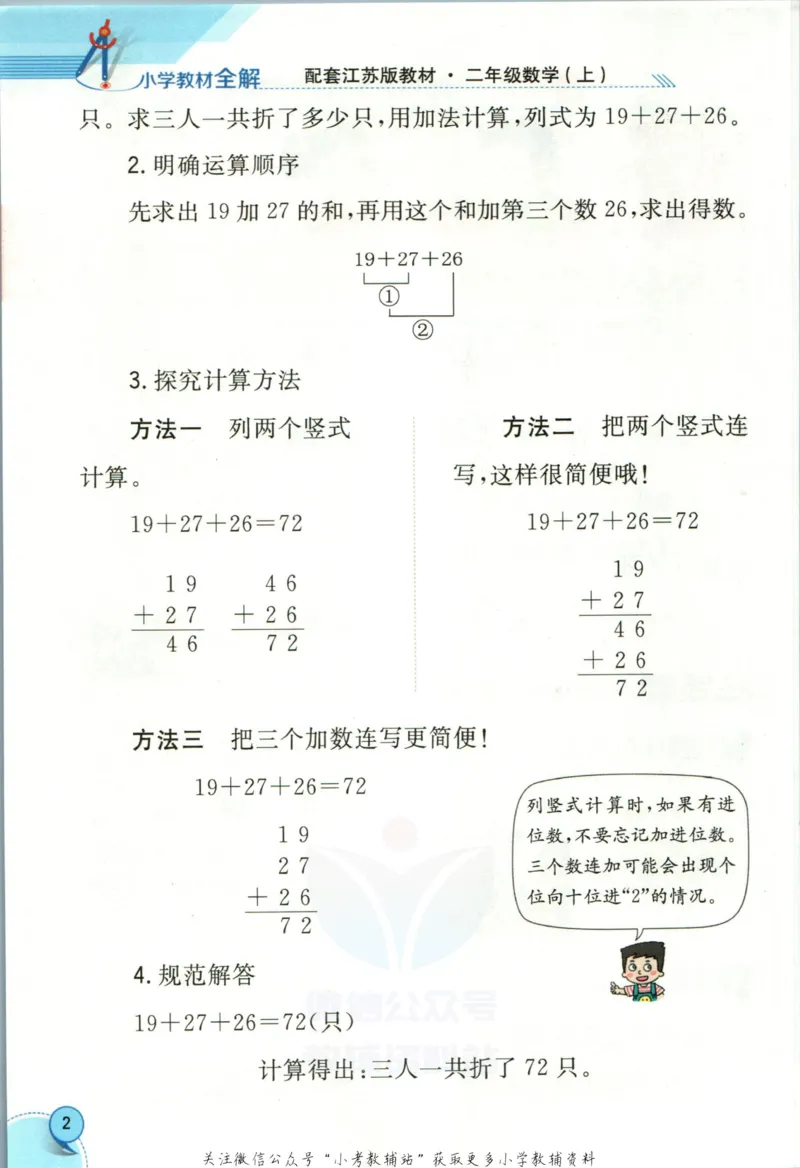 小学教材全解 配套江苏版教材·二年级数学(上)
只。求三人一共折了多少只,用加法计算,列式为 19+27+26。
2. 明确运算顺序
先求出 19 加 27 的和,再用这个和加第三个数 26,求出得数。
19+27+26
①
②
3. 探究计算方法
方法一 列两个竖式
计算。
19+27+26=72
1 9  4 6
+ 2 7  + 2 6
4 6  7 2
方法二 把两个竖式连
写,这样很简便哦!
19+27+26=72
1 9
+ 2 7
4 6
+ 2 6
7 2
方法三 把三个加数连写更简便!
19+27+26=72
1 9
2 7
+ 2 6
7 2
列竖式计算时,如果有进
位数,不要忘记加进位数。
三个数连加可能会出现个
位向十位进“2”的情况。
4. 规范解答
19+27+26=72(只)
计算得出:三人一共折了 72 只。
2
关注微信公众号“小考教辅站”获取更多小学教辅资料